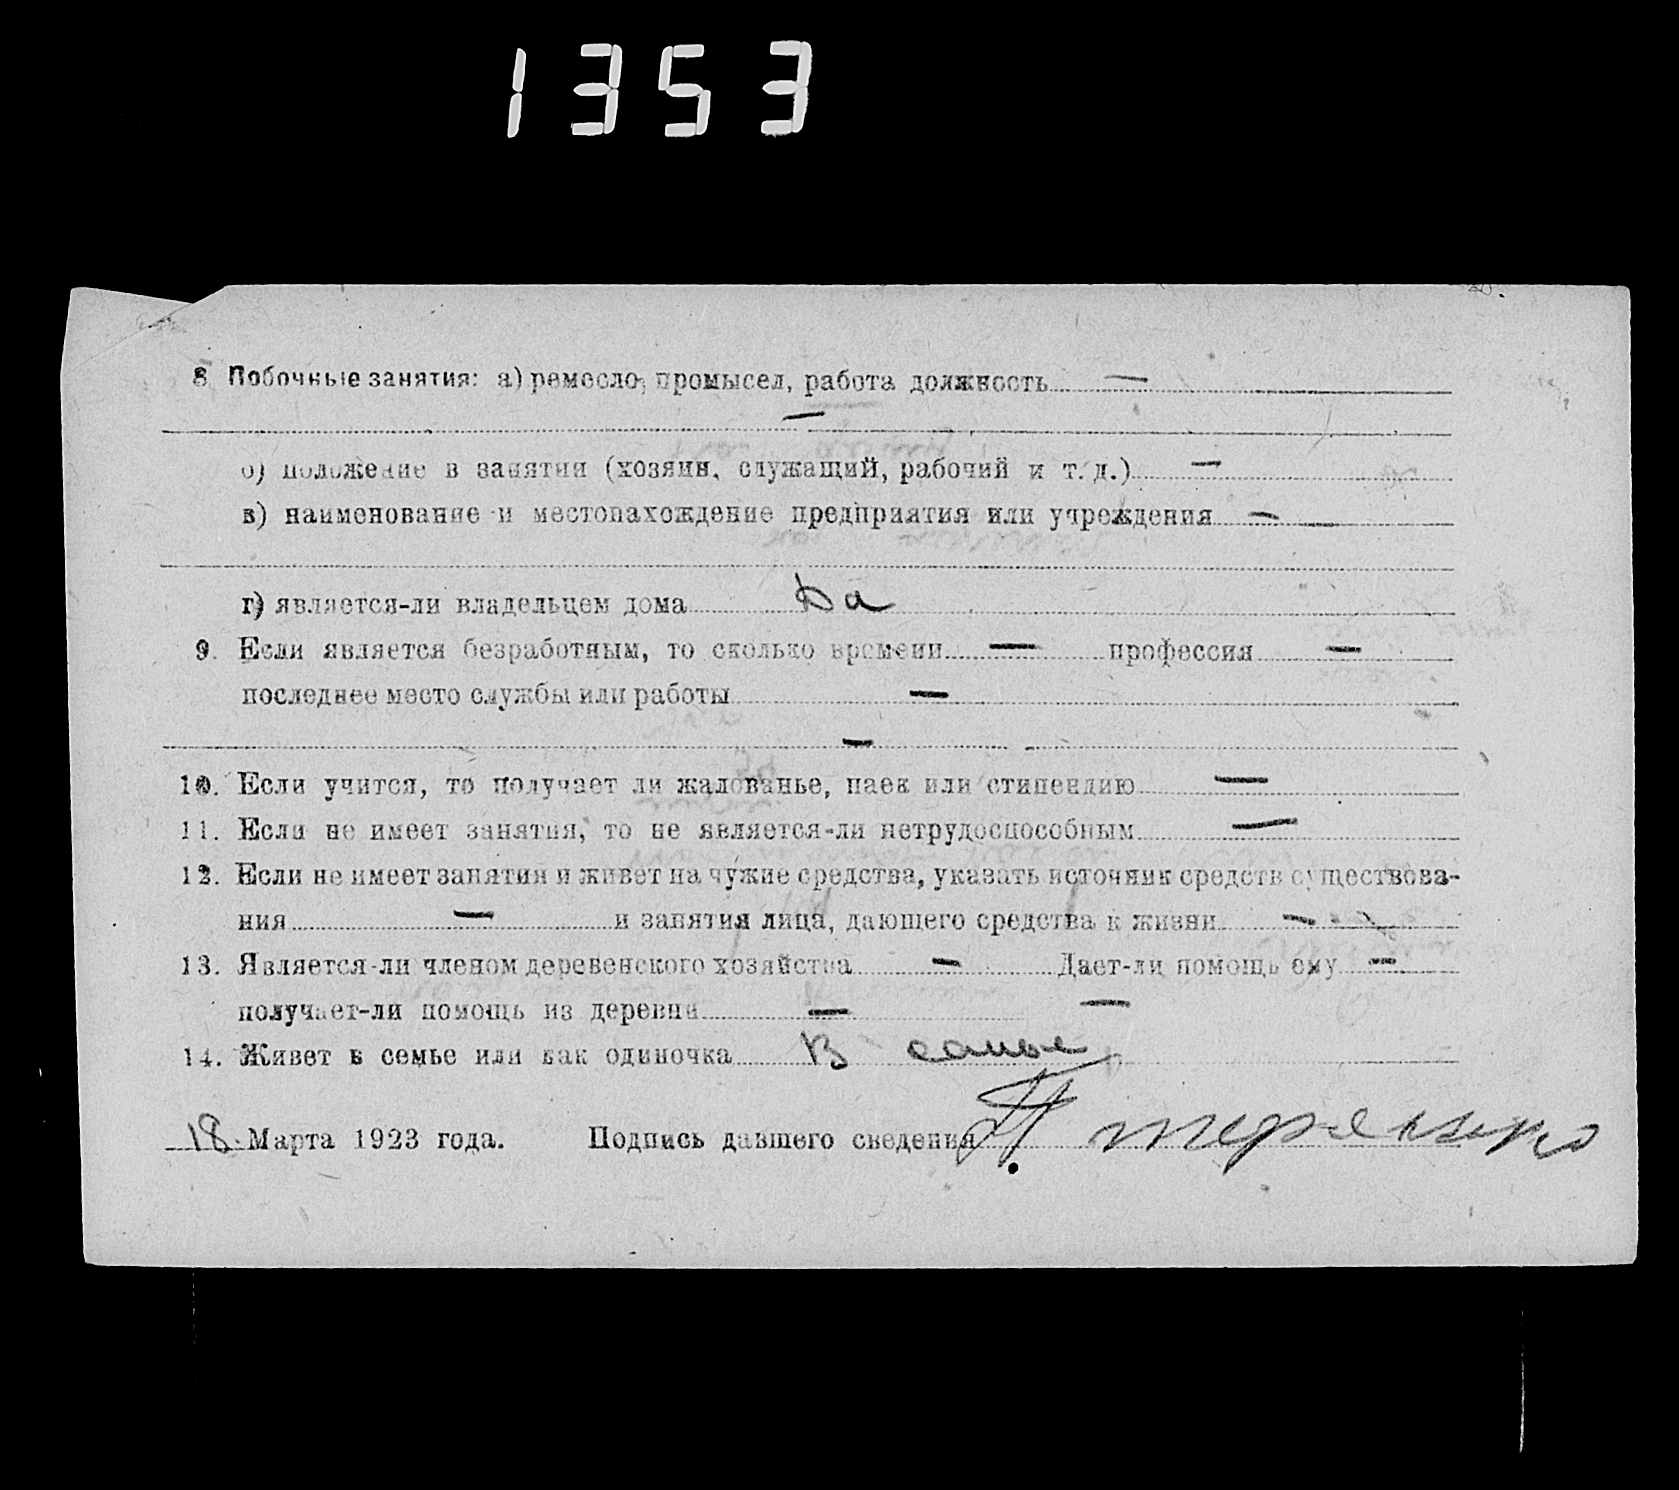 1353
8 Побочные занятия: а) ремесло, промысел, работа должность —
—
б) положение в занятии (хозяин, служащий, рабочий и т. д.) —
в) наименование и местонахождение предприятия или учреждения —
г) является-ли владельцем дома Да
9. Если является безработным, то сколько времени — профессия —
последнее место службы или работы —
—
10. Если учится, то получает ли жалованье, паек или стипендию —
11. Если не имеет занятия, то не является-ли нетрудоспособным —
12. Если не имеет занятия и живет на чужие средства, указать источник средств существова-
ния — и занятия лица, дающего средства к жизни —
13. Является-ли членом деревенского хозяйства — Дает-ли помощь ему —
получает-ли помощь из деревни — —
14. Живет в семье или как одиночка В семье
18 Марта 1923 года. Подпись давшего сведения